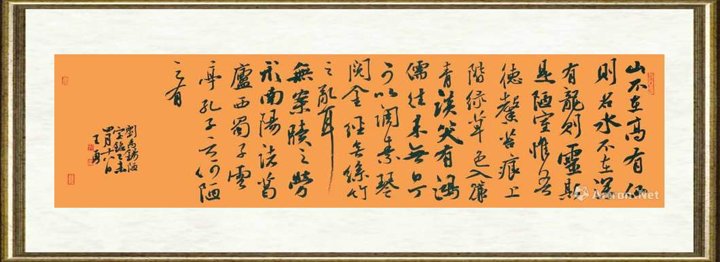 山不在高有仙
則名水不在深
有龍則靈斯
是陋室惟吾
德馨苔痕上
階緑草色入簾
青談笑有鴻
儒往来無白丁
可以調素琴
閲金經無絲竹
之乱耳
無案牘之勞
形南陽諸葛
廬西蜀子雲
亭孔子云何陋
之有
劉禹錫陋
室銘乙未
四月十八日